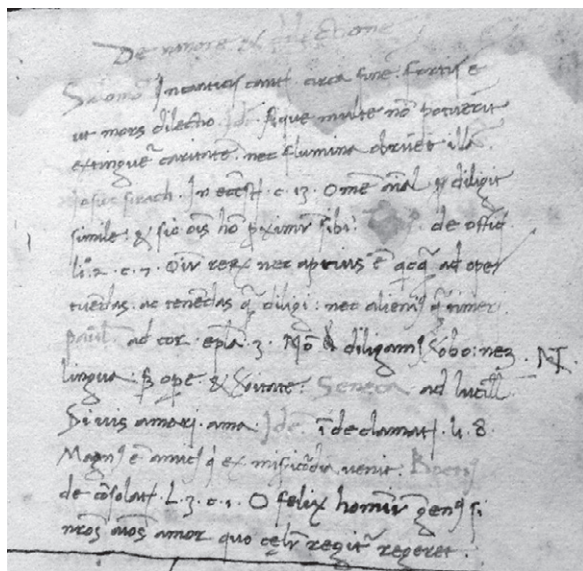 De amore et dilectione
Salomõ In canticis cant. circa finẽ. fortis ẽ
ut mors dilectio. Idẽ. Aque multe nõ potuerũt
extinguẽ caritatẽ. nec flumina obruẽt illã.
Jesus sirach. In eccłst. c. 13. Omẽ aĩal diligit
simile: & sic oĩs hõ proximũ sibi. de offic.
li.º 2. c. 7. Oĩu rerũ nec aptius ẽ ad opes
tuẽdas. ac tenẽdas q̃ diligi: nec alienius q̃ timeri.
Paul' ad cor. epła. 3. Nõ diligamus Verbo: neq3
lingua: S3 ope & Veritate. Seneca ad lucill'.
Si uis amari. ama. Idẽ. ĩ declamat. li. 8.
Magnus ẽ amicus q̃ ex misericordia uenit. Boetius
de cõsolat. L. 2. c. O felix hominũ genus si
nr̃os aĩos amor quo celũ regitur regeret.